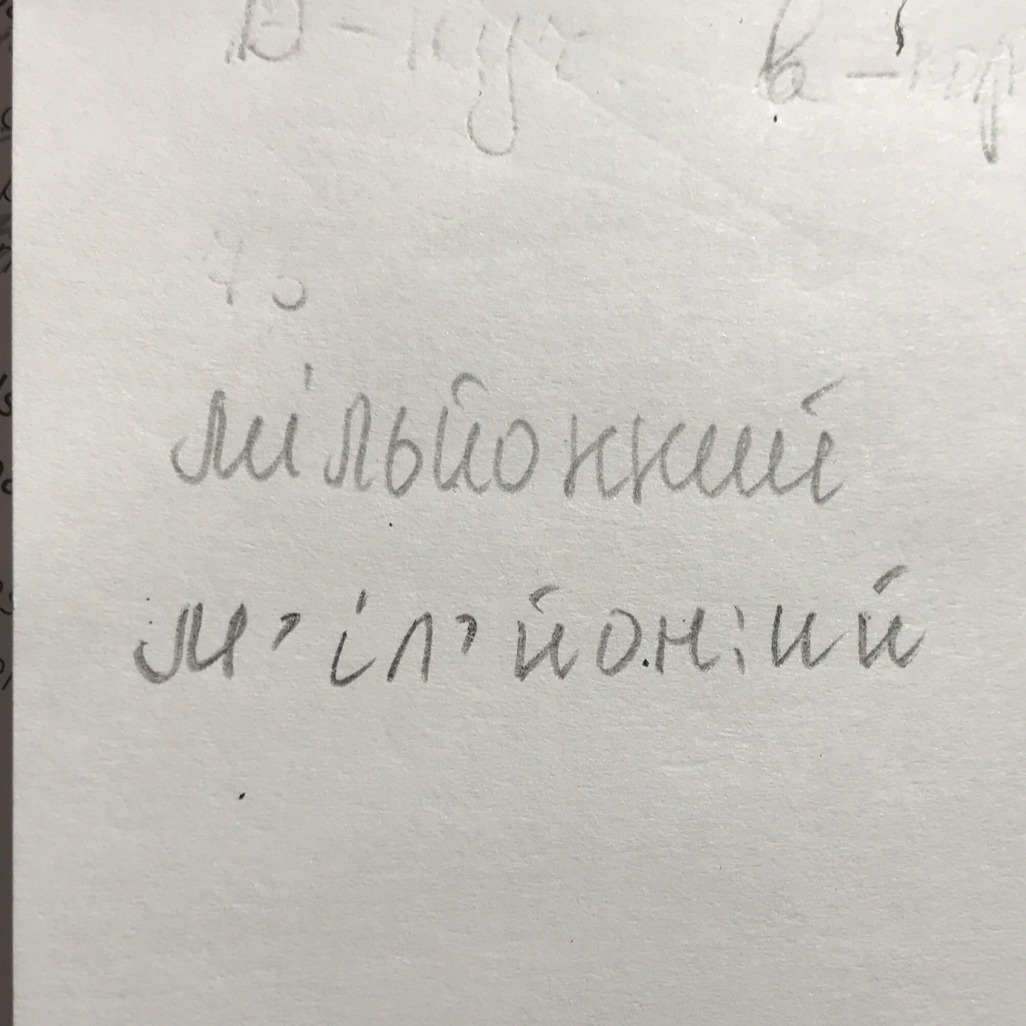 мільйонний
м’іл’йон:ий